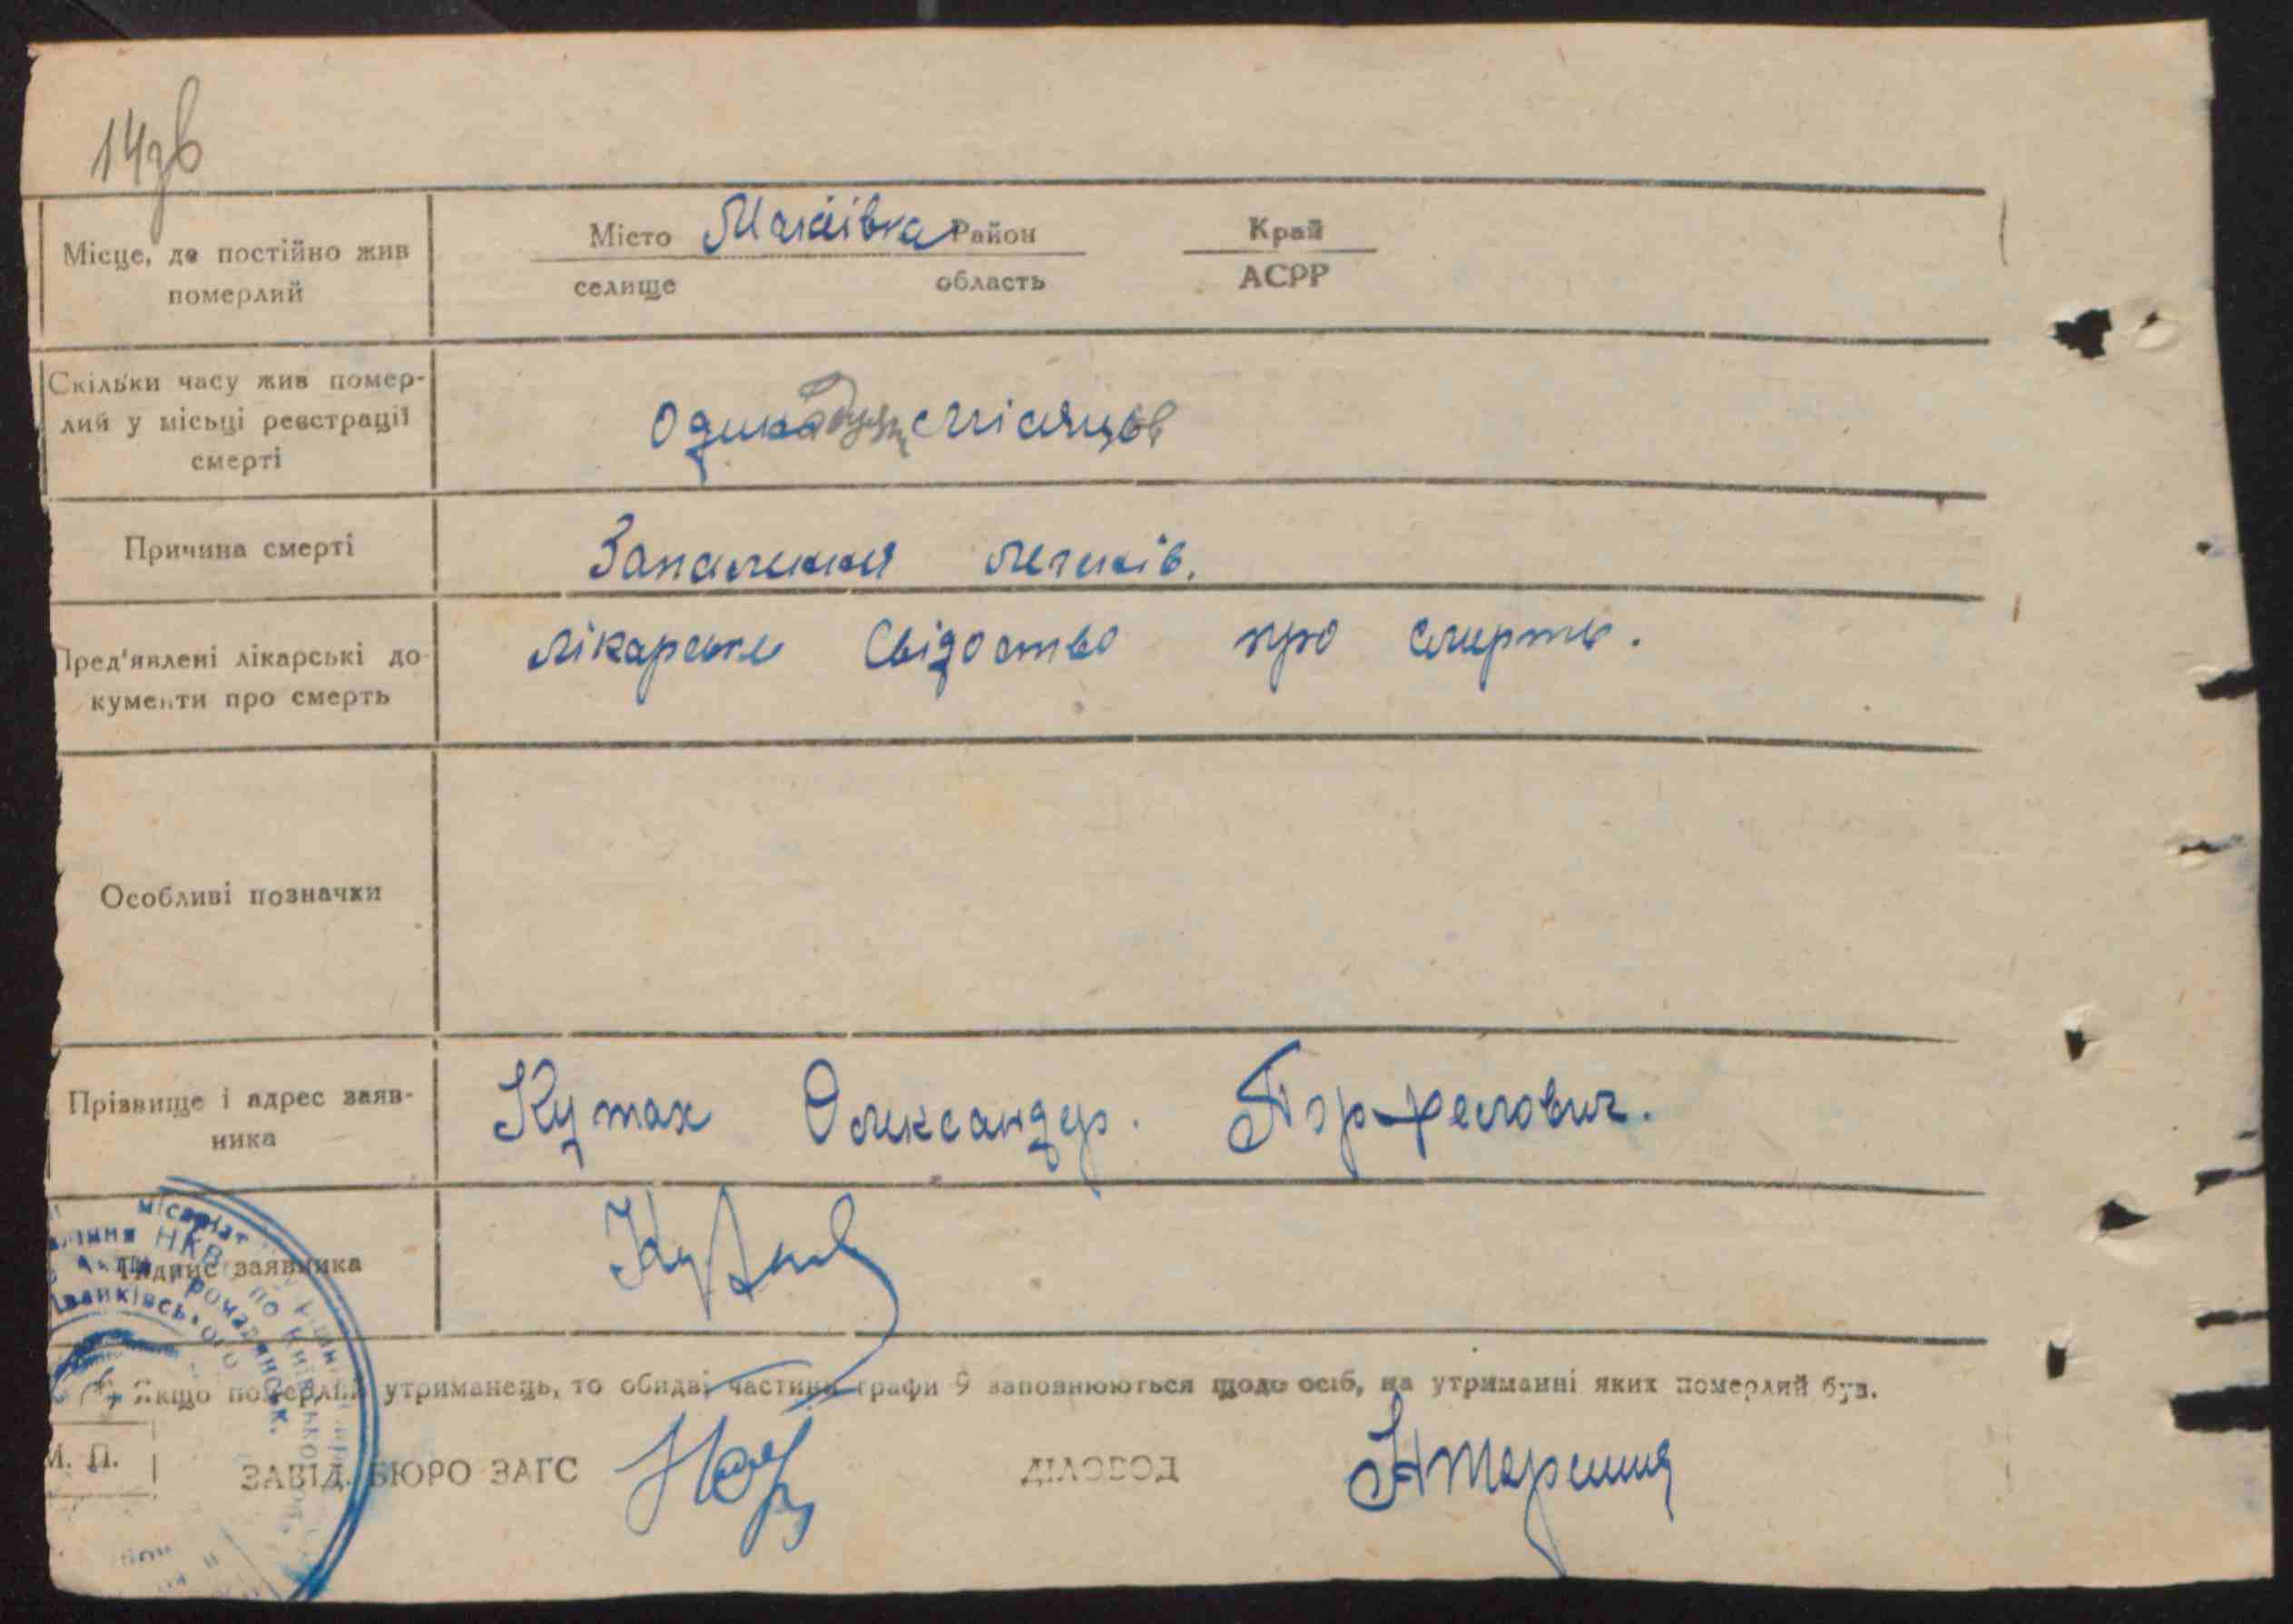 14зв
Місце, де постійно жив
померлий
Місто Макаівка Район Край
селище область АСРР
Скільки часу жив помер-
лий у місьці реєстрації
смерті
місяцов
Причина смерті
Запалення легенів.
Пред'явлені лікарські до-
кументи про смерть
лікарське свідоство про смерть.
Особливі позначки
Прізвище і адрес заяв-
ника
Кутах Олександер.
Підпис заявника
Якщо померлий утриманець, то обидві частини графи 9 заповнюються щодо осіб, на утриманні яких померлий був.
М. П.
ЗАВІД. БЮРО ЗАГС ДІЛОВОД